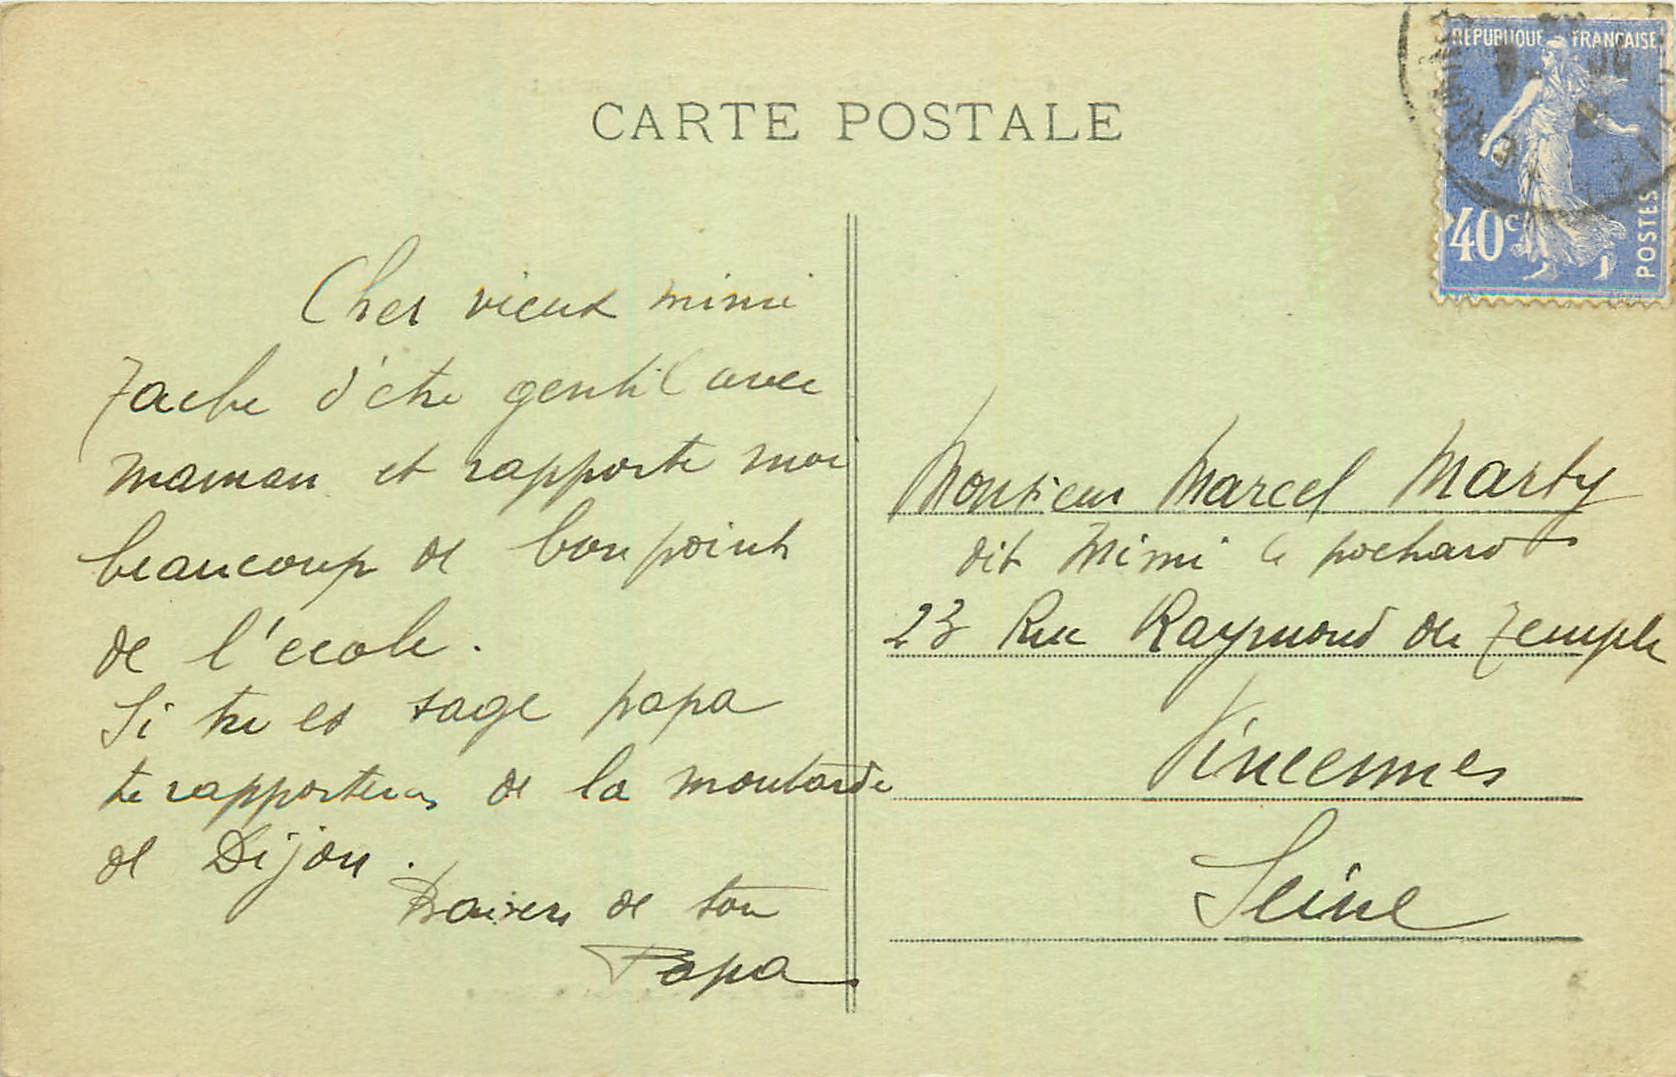 CARTE POSTALE
RÉPUBLIQUE FRANÇAISE
40c
POSTES
Cher vieux mimi
Tache d'etre gentil avec
maman et rapporte moi
beaucoup de bon points
de l'ecole.
Si tu es sage papa
te rapporteras de la moutarde
de Dijon.
Baisers de ton
Papa
Monsieur Marcel Marty
dit Mimi le pochard
23 Rue Raymond du Temple
Vincennes
Seine